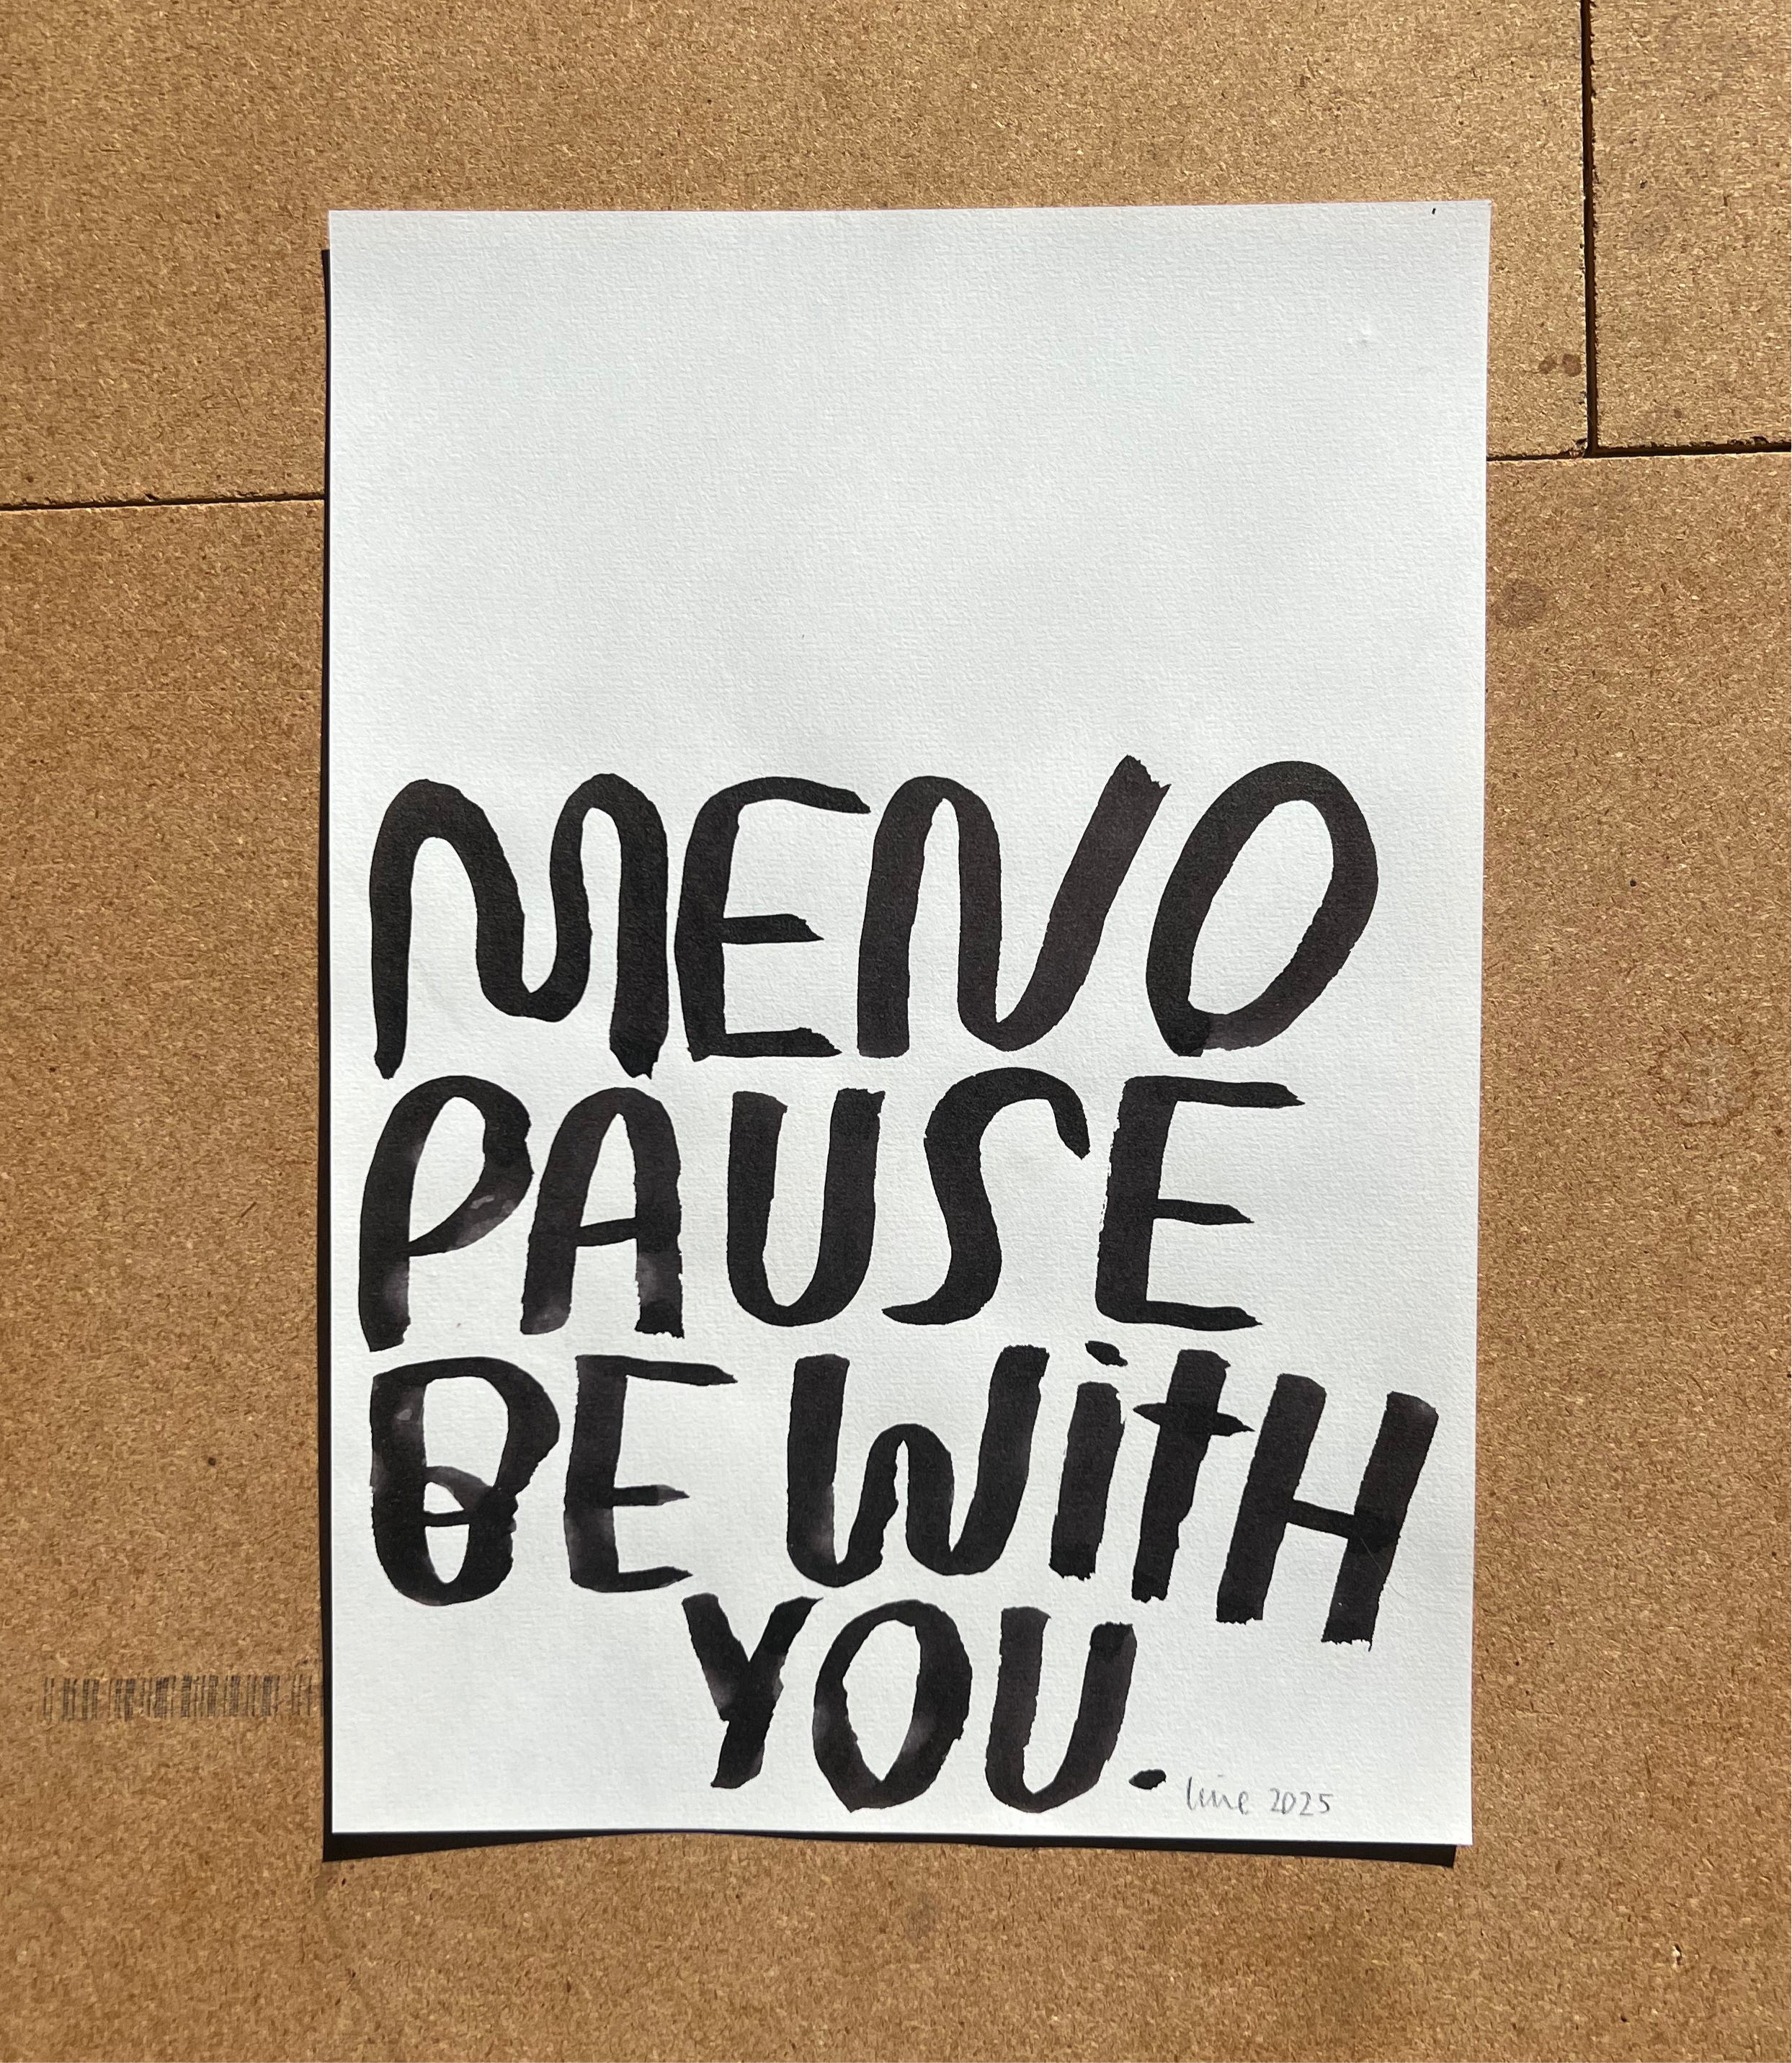 MENO
PAUSE
BE WitH
YOU.
line 2025